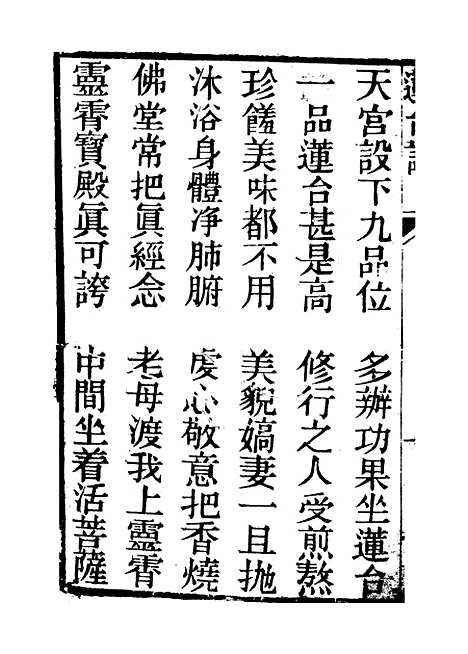 天宮設下九品位　多辦功果坐蓮台
一品蓮台甚是高　修行之人受煎熬
珍饈美味都不用　美貌嬌妻一旦拋
沐浴身體净肺腑　虔心敬意把香燒
佛堂常把眞經念　老母渡我上靈霄
靈霄寶殿眞可誇　中間坐着活菩薩